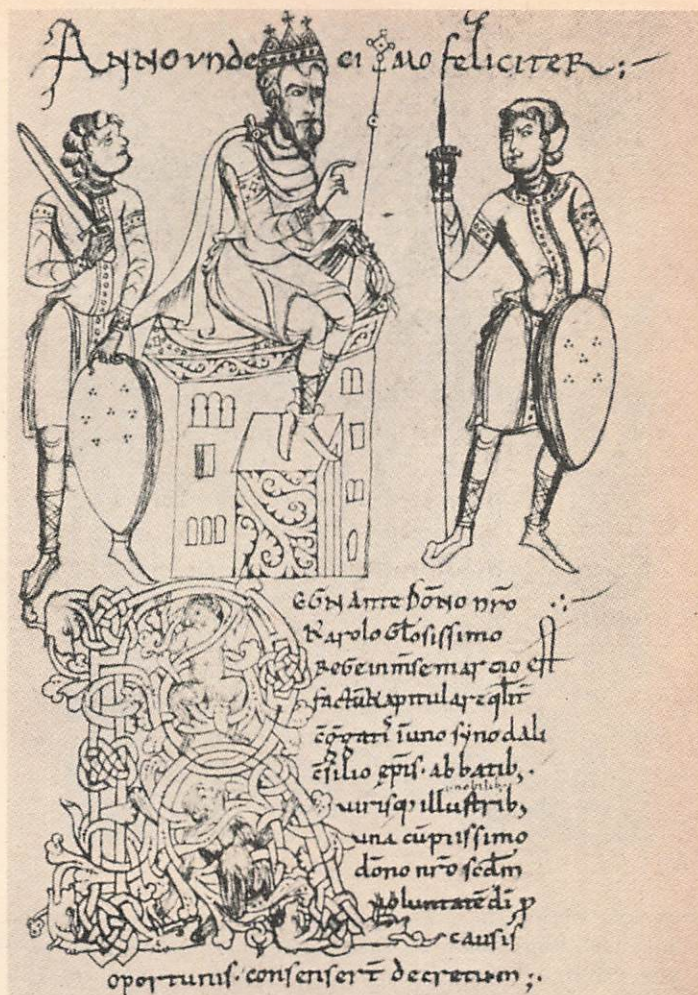 ANNO VNDECIMO feLICITER;
REGNANte DōNO nr̄o
KAROLO GLosissimo
ReGe inmse marcio est
factū KApitulare qlit̄
cōgati in uno synodali
cōsilio ep̄is· abbatib,·
nobilib
uirisq; illustrib,
una cū piissimo
dōno nr̄o scdm
uoluntatē dī p
causis
oportunis· consenser̄t decretum;·